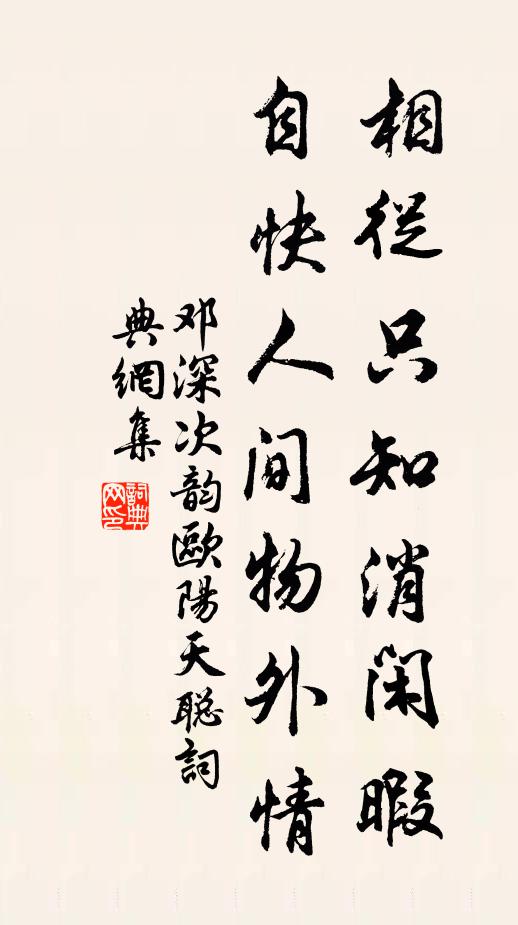 相從只知消閑暇
自快人间物外情
邓深次韵歐陽天聪詞
典網集
詞典
网印